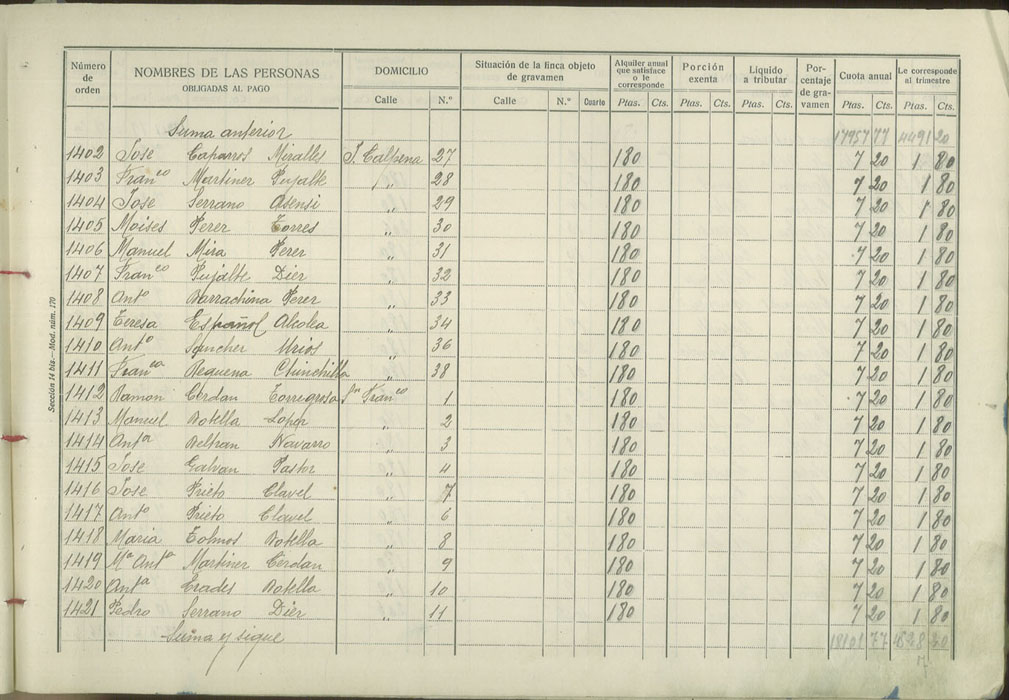 Número de orden | NOMBRES DE LAS PERSONAS OBLIGADAS AL PAGO | DOMICILIO | Situación de la finca objeto de gravamen | Alquiler anual que satisface o le corresponde | Porción exenta | Liquido a tributar | Porcentaje de gravamen | Cuota anual | Le corresponde al trimestre
Calle | N.º | Calle | N.º | Cuarto | Ptas. | Cts. | Ptas. | Cts. | Ptas. | Cts. | Ptas. | Cts. | Ptas. | Cts.
Suma anterior 17957 77 4491 20
1402 Jose Caparros Miralles 27 180 7 20 1 80
1403 Franco Martinez Pujalte " 28 180 7 20 1 80
1404 Jose Serrano Asensi " 29 180 7 20 1 80
1405 Moises Perez Torres " 30 180 7 20 1 80
1406 Manuel Mira Perez " 31 180 7 20 1 80
1407 Franco Pujalte Diez " 32 180 7 20 1 80
1408 Anto Barrachina Perez " 33 180 7 20 1 80
1409 Teresa Español Alcolea " 34 180 7 20 1 80
1410 Anto Sanchez Urios " 36 180 7 20 1 80
1411 Franca Requena Chinchilla " 38 180 7 20 1 80
1412 Ramon Cerdan Torregrosa Sn Franco 1 180 7 20 1 80
1413 Manuel Botella Lopez " 2 180 7 20 1 80
1414 Anta Beltran Navarro " 3 180 7 20 1 80
1415 Jose Galvan Pastor " 4 180 7 20 1 80
1416 Jose Prieto Clavel " 7 180 7 20 1 80
1417 Anto Prieto Clavel " 6 180 7 20 1 80
1418 Maria Tolmos Botella " 8 180 7 20 1 80
1419 Ma Anta Martinez Cerdan " 9 180 7 20 1 80
1420 Anta Erades Botella " 10 180 7 20 1 80
1421 Pedro Serrano Diez " 11 180 7 20 1 80
Suma y sigue 18101 77
Sección 14 bis.—Mod. núm. 170